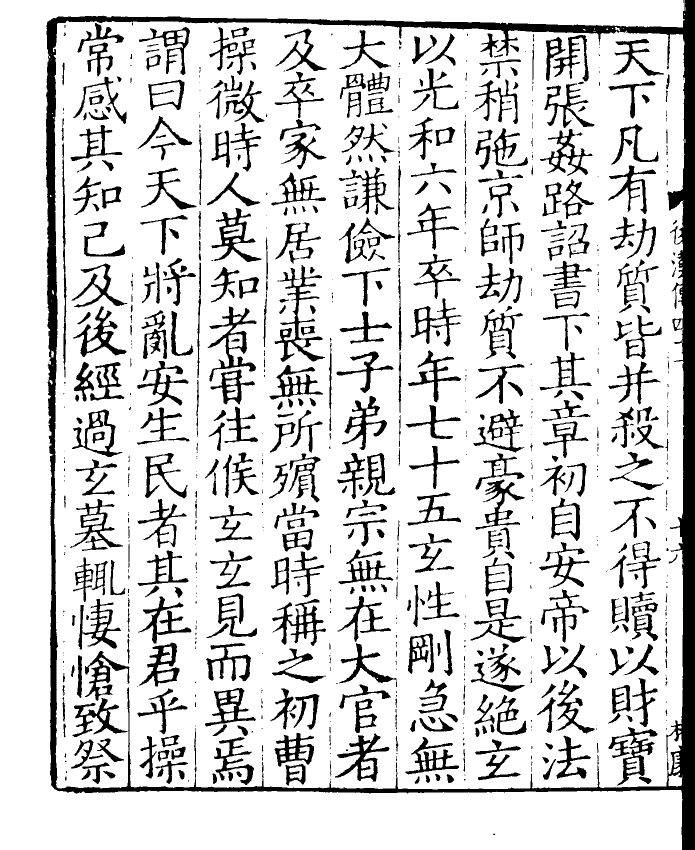 天下凡有劫質皆并殺之不得贖以財寶
開張姦路詔書下其章初自安帝以後法
禁稍弛京師劫質不避豪貴自是遂絶玄
以光和六年卒時年七十五玄性剛急無
大體然謙儉下士子弟親宗無在大官者
及卒家無居業喪無所殯當時稱之初曹
操微時人莫知者甞往候玄玄見而異焉
謂曰今天下將亂安生民者其在君乎操
常感其知己及後經過玄墓輒悽愴致祭